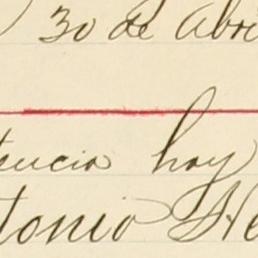 30 de Abri
tencia hoy
tonio He